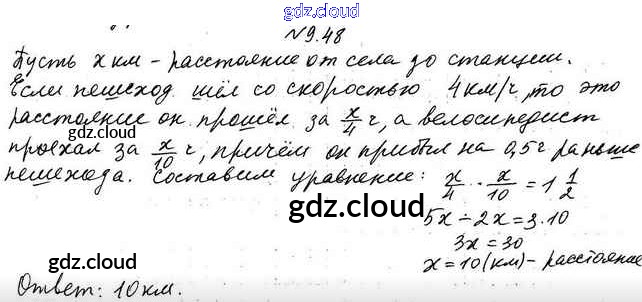 gdz.cloud
№9.48
Пусть x км – расстояние от села до станции.
Если пешеход шёл со скоростью 4 км/ч, то это
расстояние он прошёл за x/4 ч, а велосипедист
проехал за x/10 ч, причём он прибыл на 0,5 ч раньше
пешехода. Составим уравнение: x/4 - x/10 = 1 1/2
gdz.cloud
gdz.cloud
5x - 2x = 3·10
3x = 30
gdz.cloud
x = 10 (км) - расстояние
Ответ: 10 км.